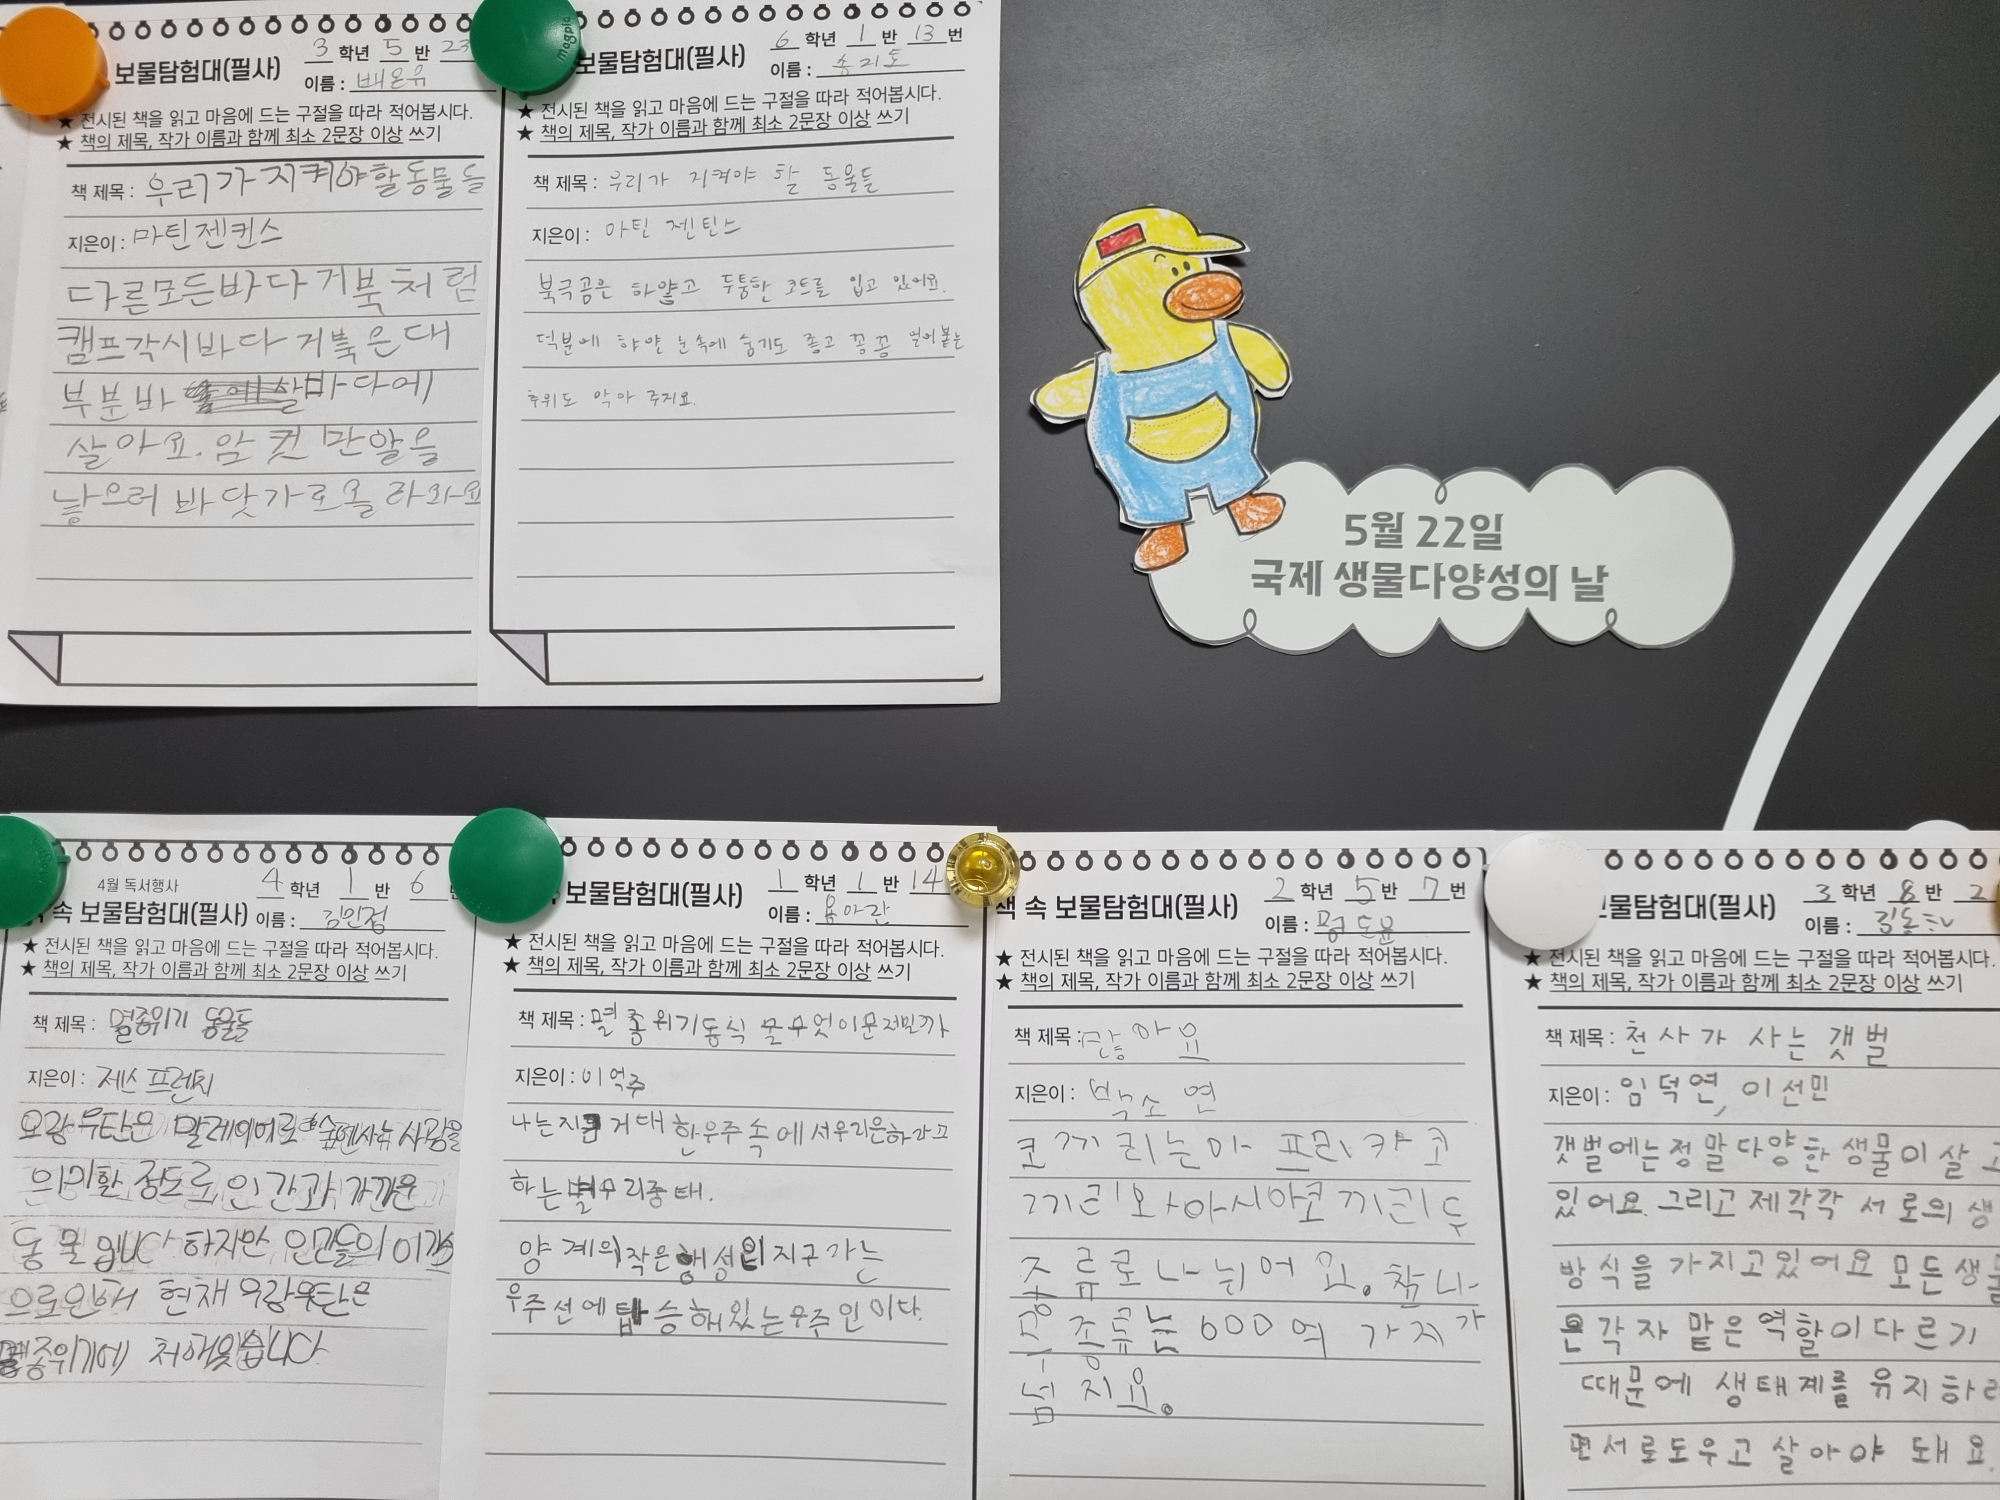 보물탐험대(필사)
3 학년 5 반 23
이름 : 배온유
★ 전시된 책을 읽고 마음에 드는 구절을 따라 적어봅시다.
★ 책의 제목, 작가 이름과 함께 최소 2문장 이상 쓰기
책 제목 : 우리가 지켜야할동물들
지은이 : 마틴젠킨스
다른모든바다거북처럼
캠프각시바다거북은대
부분바 바다에
살아요. 암컷만알을
낳으러 바닷가로올라와요
magpie
보물탐험대(필사)
6 학년 1 반 13 번
이름 : 송지도
★ 전시된 책을 읽고 마음에 드는 구절을 따라 적어봅시다.
★ 책의 제목, 작가 이름과 함께 최소 2문장 이상 쓰기
책 제목 : 우리가 지켜야 할 동물들
지은이 : 마틴 젠틴스
북극곰은 하얗고 두툼한 코트를 입고 있어요.
덕분에 하얀 눈속에 숨기도 좋고 꽁꽁 얼어붙는
추위도 막아 주지요.
5월 22일
국제 생물다양성의 날
4월 독서행사
속 보물탐험대(필사)
4 학년 1 반 6
이름 : 김민정
★ 전시된 책을 읽고 마음에 드는 구절을 따라 적어봅시다.
★ 책의 제목, 작가 이름과 함께 최소 2문장 이상 쓰기
책 제목 : 멸종위기 동물들
지은이 : 제스 프렌치
오랑우탄은 말레이어로 숲에사는 사람을
의미할 정도로 인간과 가까운
동물입니다 하지만 인간들의
으로인해 현재 오랑우탄은
멸종위기에 처해있습니다.
보물탐험대(필사)
1 학년 1 반 14
이름 : 용아란
★ 전시된 책을 읽고 마음에 드는 구절을 따라 적어봅시다.
★ 책의 제목, 작가 이름과 함께 최소 2문장 이상 쓰기
책 제목 : 멸종위기동식물무엇이문제일까
지은이 : 이억주
나는지금거대한우주속에서우리은하라고
하는별무리중태.
양계의작은행성인지구가는
우주선에탑승해있는우주인이다.
책 속 보물탐험대(필사)
2 학년 5 반 7 번
이름 : 명도윤
★ 전시된 책을 읽고 마음에 드는 구절을 따라 적어봅시다.
★ 책의 제목, 작가 이름과 함께 최소 2문장 이상 쓰기
책 제목 : 많아요
지은이 : 박소연
코끼리는아프리카코
끼리와아시아코끼리두
종류로나뉘어요.참나
무종류는600여가지가
넘지요.
보물탐험대(필사)
3 학년 8 반 2
이름 :
★ 전시된 책을 읽고 마음에 드는 구절을 따라 적어봅시다.
★ 책의 제목, 작가 이름과 함께 최소 2문장 이상 쓰기
책 제목 : 천사가 사는 갯벌
지은이 : 임덕연, 이선민
갯벌에는정말다양한생물이살고
있어요. 그리고 제각각 서로의 생
방식을 가지고있어요 모든생물
은각자 맡은역할이다르기
때문에 생태계를 유지하려
면서로도우고 살아야 돼요.